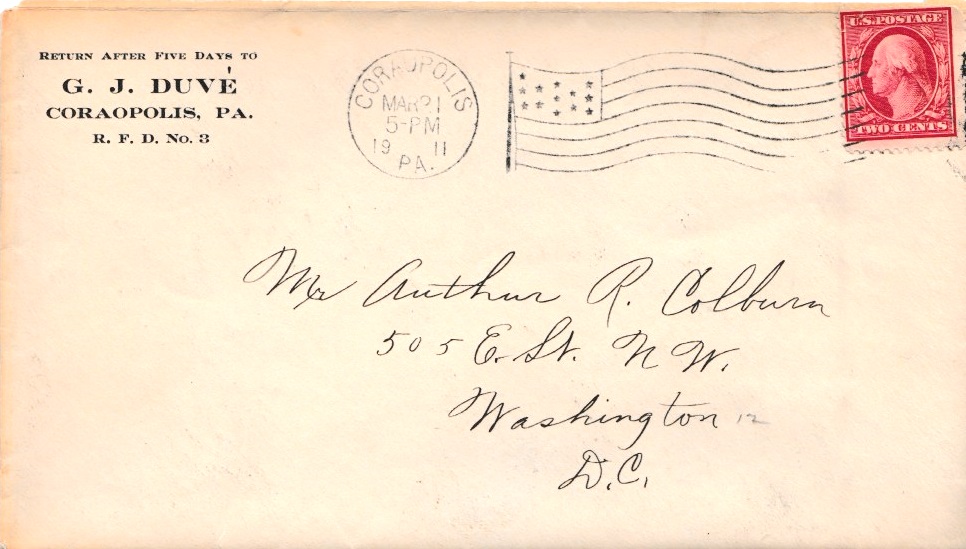 RETURN AFTER FIVE DAYS TO
G. J. DUVÉ
CORAOPOLIS, PA.
R. F. D. No. 3
CORAOPOLIS
MAR 21
5-PM
19 11
PA.
U.S. POSTAGE
TWO CENTS
Mr Arthur R. Colburn
505 E. St. N W.
Washington 12
D.C.